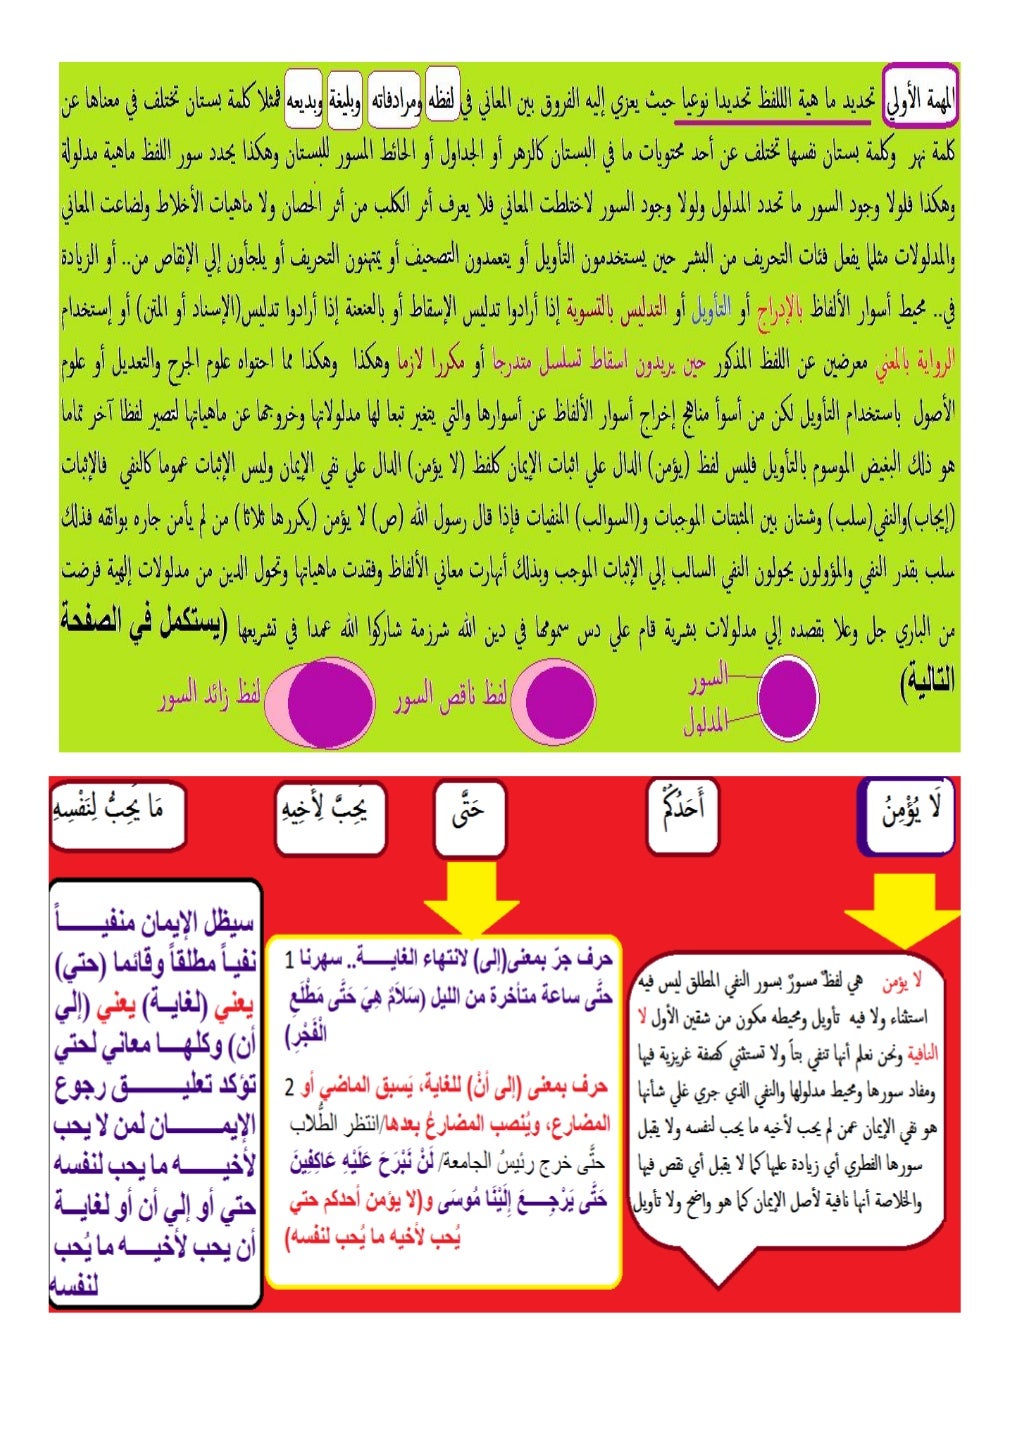 المهمة الأولي تحديد ما هية اللفظ تحديدا نوعيا حيث يعزي إليه الفروق بين المعاني في لفظه ومرادفاته وبليغة وبديعه فمثلا كلمة بستان تختلف في معناها عن
كلمة نهر وكلمة بستان نفسها تختلف عن أحد محتويات ما في البستان كالزهر أو الجداول أو الحائط المسور للبستان وهكذا يحدد سور اللفظ ماهية مدلولة
وهكذا فلولا وجود السور ما تحدد المدلول ولولا وجود السور لاختلطت المعاني فلا يعرف أثر الكلب من أثر الحصان ولا ماهيات الأخلاط ولضاعت المعاني
والمدلولات مثلما يفعل فئات التحريف من البشر حين يستخدمون التأويل أو يتعمدون التصحيف أو يمتهنون التحريف أو يلجأون إلي الإنقاص من.. أو الزيادة
في.. محيط أسوار الألفاظ بالإدراج أو التأويل أو التدليس بالتسوية إذا أرادوا تدليس الإسقاط أو بالعنعنة إذا أرادوا تدليس(الإسناد أو المتن) أو إستخدام
الرواية بالمعني معرضين عن اللفظ المذكور حين يريدون اسقاط تسلسل متدرجا أو مكررا لازما وهكذا وهكذا مما احتواه علوم الجرح والتعديل أو علوم
الأصول باستخدام التأويل لكن من أسوأ مناهج إخراج أسوار الألفاظ عن أسوارها والتي يتغير تبعا لها مدلولاتها وخروجها عن ماهياتها لتصير لفظا آخر تماما
هو ذلك البغيض الموسوم بالتأويل فليس لفظ (يؤمن) الدال علي اثبات الإيمان كلفظ (لا يؤمن) الدال علي نفي الإيمان وليس الإثبات عموما كالنفي فالإثبات
(إيجاب)والنفي(سلب) وشتان بين المثبتات الموجبات و(السوالب) المنفيات فإذا قال رسول الله (ص) لا يؤمن (يكررها ثلاثا) من لم يأمن جاره بوائقه فذلك
سلب بقدر النفي والمؤولون يحولون النفي السالب إلي الإثبات الموجب وبذلك أنهارت معاني الألفاظ وفقدت ماهياتها وتحول الدين من مدلولات إلهية فرضت
من الباري جل وعلا بقصده إلي مدلولات بشرية قام علي دس سمومها في دين الله شرزمة شاركوا الله عمدا في تشريعها (يستكمل في الصفحة
التالية)
السور
المدلول
لفظ ناقص السور
لفظ زائد السور
لَا يُؤْمِنُ
أَحَدُكُمْ
حَتَّى
يُحِبَّ لِأَخِيهِ
مَا يُحِبُّ لِنَفْسِهِ
لا يؤمن هي لفظٌ مسورٌ بسور النفي المطلق ليس فيه
استثناء ولا فيه تأويل ومحيطه مكون من شقين الأول لا
النافية ونحن نعلم أنها تنفي بتاً ولا تستثني كصفة غريزية فيها
ومفاد سورها ومحيط مدلولها والنفي الذي جري علي شأنها
هو نفي الإيمان عمن لم يحب لأخيه ما يحب لنفسه ولا يقبل
سورها الفطري أي زيادة عليها كما لا يقبل أي نقص فيها
والخلاصة أنها نافية لأصل الإيمان كما هو واضح ولا تأويل
1 حرف جرّ بمعنى(إلى) لانتهاء الغاية.. سهرنا
حتَّى ساعة متأخرة من الليل (سَلَامٌ هِيَ حَتَّى مَطْلَعِ
الْفَجْرِ)
2 حرف بمعنى (إلى أنْ) للغاية، يَسبق الماضي أو
المضارع، ويُنصب المضارعُ بعدها/انتظر الطُّلاب
حتَّى خرج رئيسُ الجامعة/ لَنْ نَبْرَحَ عَلَيْهِ عَاكِفِينَ
حَتَّى يَرْجِعَ إِلَيْنَا مُوسَى و(لا يؤمن أحدكم حتي
يُحب لأخيه ما يُحب لنفسه)
سيظل الإيمان منفياً
نفياً مطلقاً وقائما (حتي)
يعني (لغاية) يعني (إلي
أن) وكلها معاني لحتي
تؤكد تعليق رجوع
الإيمان لمن لا يحب
لأخيه ما يحب لنفسه
حتي أو إلي أن أو لغاية
أن يحب لأخيه ما يُحب
لنفسه